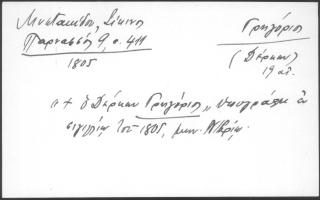 Μυστακίδου, Σίκινος
Παρνασσός 9, σ. 411
1805
Γρηγόριος
(Δέρκων)
19 αἰ.
"+ ὁ Δέρκων Γρηγόριος" ὑπογράφει ἐν
σιγιλλίῳ τοῦ 1805, μην.